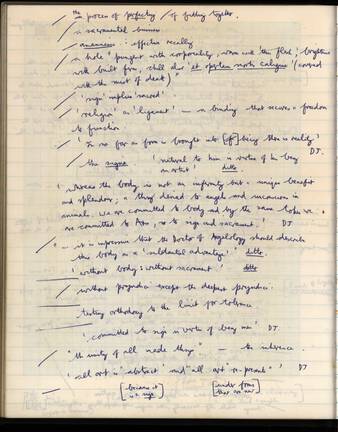 the process of perfecting / of fitting together.
a sacramental business
anamnesis : effective recalling
a hole "pinguit with corporeality, worn well 'thin flesh', brighten
with built from, still also 'et opertum mortis caligine' (covered
with the mist of death)"
'sign' implies 'sacred'
'religio' as 'ligament' — a binding that secures a freedom
to function
'In so far as form is brought into [of] being there is reality'
DJ.
the signa 'natural to him in virtue of his being
an artist' ditto.
'whereas the body is not an infirmity but a unique benefit
and splendour; a thing denied to angels and unconscious in
animals. We are committed to body and by the same token we
are committed to Ars, so to sign and sacrament.' DJ
— it is impressive that the Doctor of Angelology should describe
this body as a 'substantial advantage' ditto
'without body : without sacrament.' ditto
without prejudice except the deepest prejudice.
testing orthodoxy to the limit for tolerance
'committed to sign in virtue of being man' DJ.
"the unity of all made things" — the inherence.
'all art is "abstract" and all art "re-presents"' DJ
[because it is a sign] [under forms that are new]